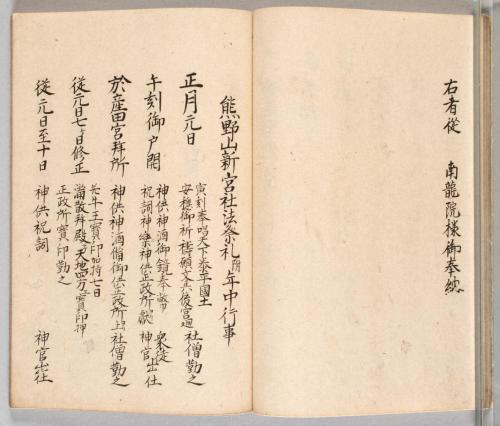 右者從　南龍院様御奉納
熊野山新宮社法祭礼附年中行事
正月元日
寅刻奉唱天下泰平國土
安穏御祈祷願文喜後宮廻
社僧勤之
午刻御戸開
神供神酒御鏡奉幣　衆徒
祝詞神樂神供正政所献　神官出仕
於産田宮拜所
神供神酒備御供正政所上ル
社僧勤之
從元日七ヶ日修正
牛王寳印加持七日
満散拜殿ニテ天地四方ニ寳印押
正政所寳印勤之
從元日至十日
神供祝詞
神官出仕